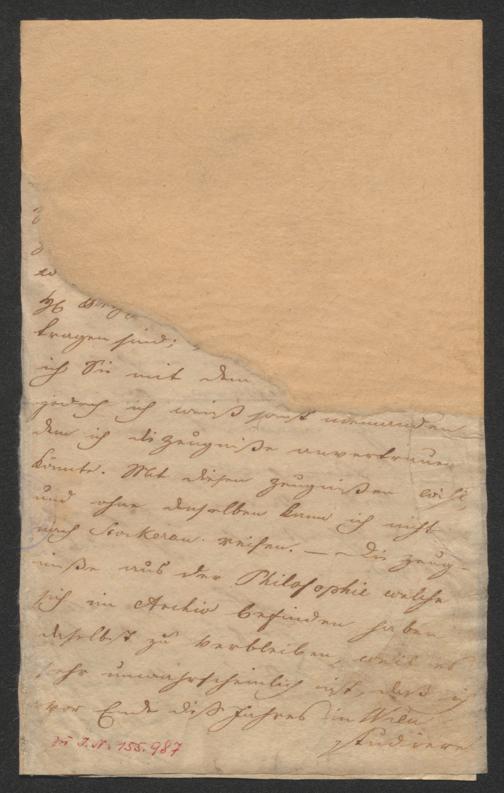 tragen sind;
ich Sie mit dem
jedoch ich weiß sonst niemanden
dem ich die Zeugniße anvertrauen
könnte. Mit diesen Zeugnißen
und ohne denselben kann ich nicht
nach Stockerau reisen. — Die Zeug-
niße aus der Philosophie welche
sich im Archiv befinden haben
daselbst zu verbleiben, weil es
sehr unwahrscheinlich ist, daß ich
vor Ende diß Jahres in Wien
studiere
zu I.N. 155.987